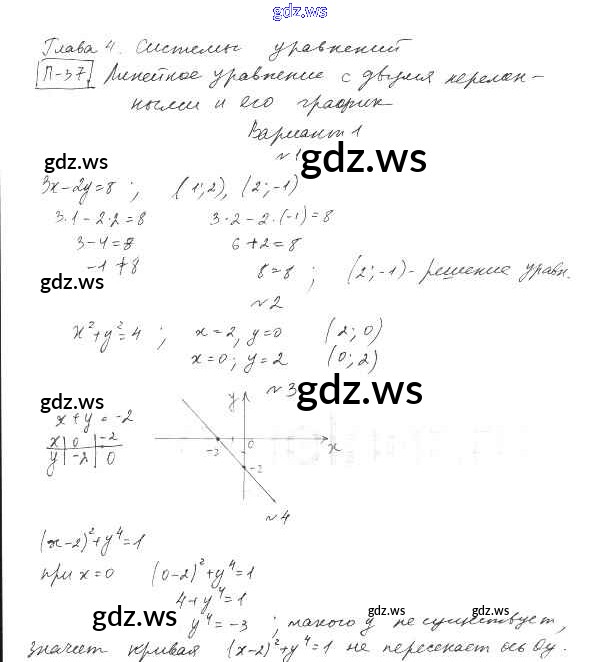 gdz.ws
Глава 4. Системы уравнений
П-37. Линейное уравнение с двумя перемен-
ными и его график
Вариант 1
№1
gdz.ws
3x-2y=8; (1;2), (2;-1)
gdz.ws
3·1-2·2=8 3·2-2·(-1)=8
3-4=8 6+2=8
-1≠8 8=8; (2;-1)-решение уравн.
gdz.ws
№2
x²+y²=4; x=2, y=0 (2;0)
x=0; y=2 (0;2)
№3
gdz.ws
gdz.ws
x+y=-2
x 0 -2
y -2 0
y
-2 0 x
-2
№4
(x-2)²+y⁴=1
при x=0 (0-2)²+y⁴=1
4+y⁴=1
gdz.ws
gdz.ws
gdz.ws
y⁴=-3; такого y не существует,
значит кривая (x-2)²+y⁴=1 не пересекает ось Oy.